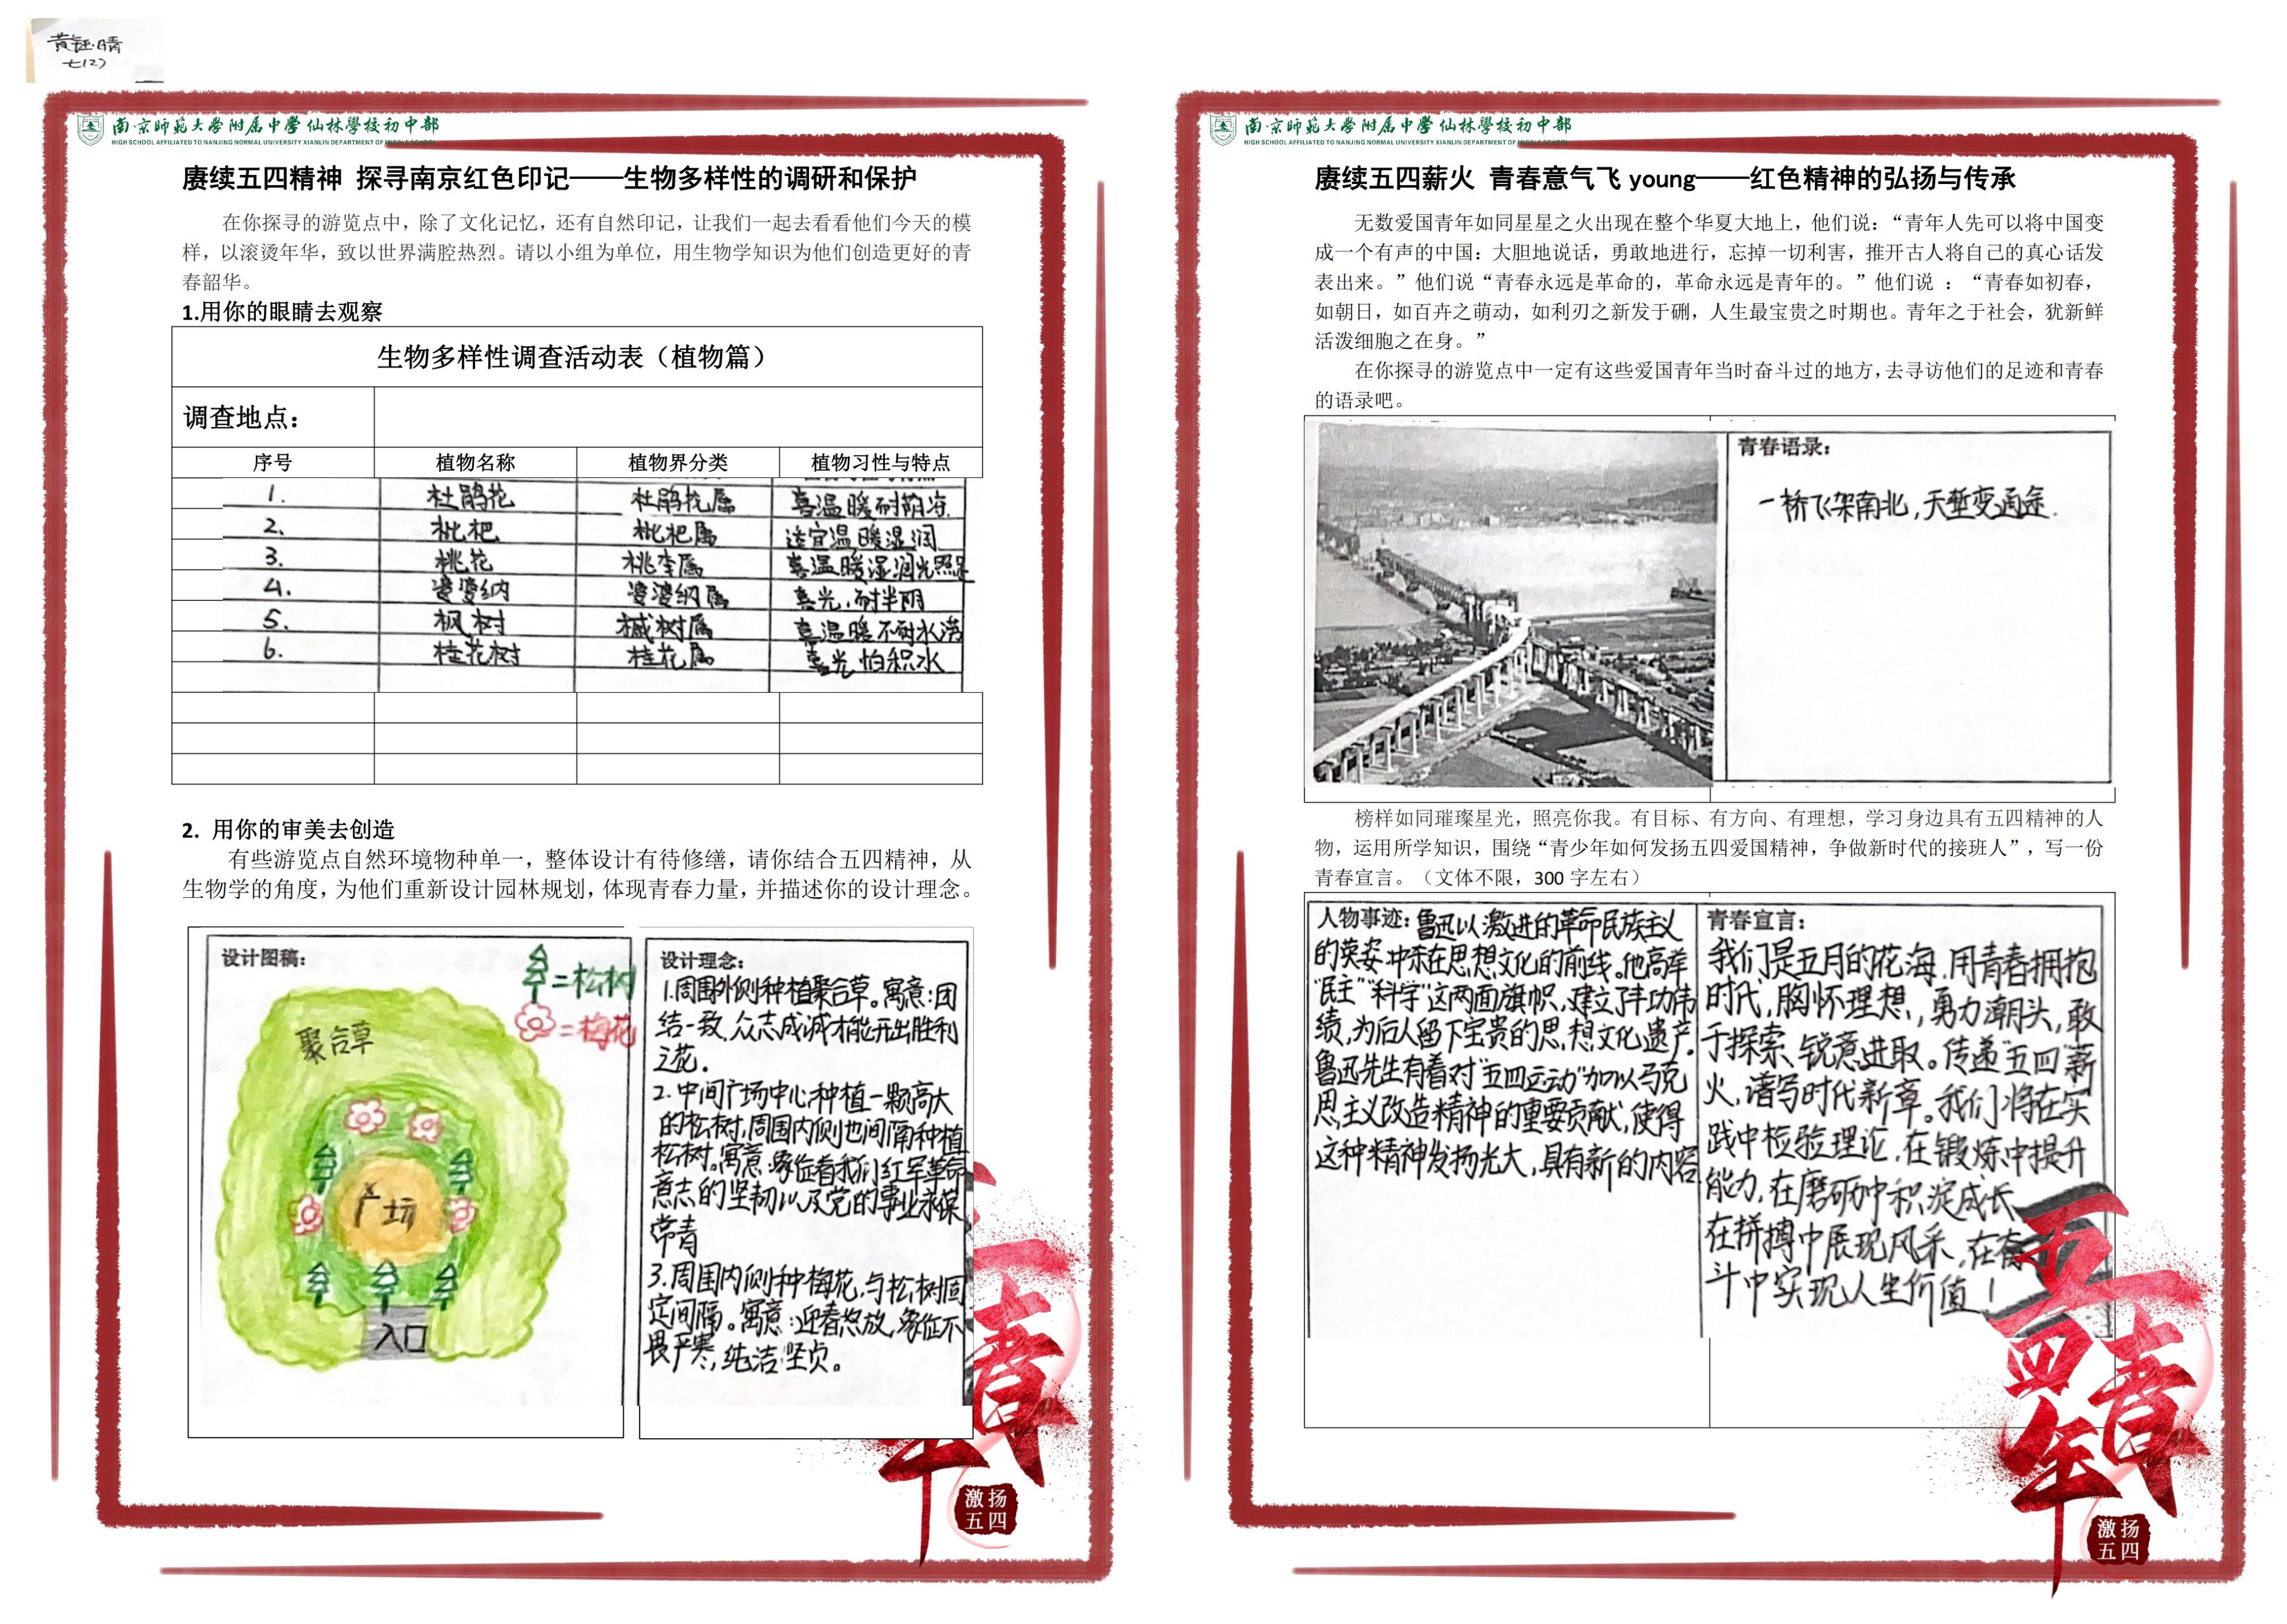 黄钰晴
七(2)
南京師範大學附属中學仙林學校初中部
HIGH SCHOOL AFFILIATED TO NANJING NORMAL UNIVERSITY XIANLIN DEPARTMENT OF MIDDLE SCHOOL
赓续五四精神 探寻南京红色印记——生物多样性的调研和保护
在你探寻的游览点中，除了文化记忆，还有自然印记，让我们一起去看看他们今天的模
样，以滚烫年华，致以世界满腔热烈。请以小组为单位，用生物学知识为他们创造更好的青
春韶华。
1.用你的眼睛去观察
生物多样性调查活动表（植物篇）
调查地点：
序号 植物名称 植物界分类 植物习性与特点
1. 杜鹃花 杜鹃花属 喜温暖耐阴凉
2. 枇杷 枇杷属 适宜温暖湿润
3. 桃花 桃李属 喜温暖湿润光照足
4. 婆婆纳 婆婆纳属 喜光，耐半阴
5. 枫树 槭树属 喜温暖不耐水涝
6. 桂花树 桂花属 喜光 怕积水
2. 用你的审美去创造
有些游览点自然环境物种单一，整体设计有待修缮，请你结合五四精神，从
生物学的角度，为他们重新设计园林规划，体现青春力量，并描述你的设计理念。
设计图稿：
=松树
=梅花
聚合草
广场
入口
设计理念：
1.周围外侧种植聚合草。寓意：团
结一致，众志成诚才能开出胜利
之花。
2.中间广场中心种植一颗高大
的松树，周围内侧也间隔种植
松树。寓意：象征着我们红军革命
意志的坚韧以及党的事业永葆
常青
3.周围内侧种梅花，与松树固
定间隔。寓意：迎春怒放，象征不
畏严寒，纯洁坚贞。
青
年
激扬
五四
南京師範大學附属中學仙林學校初中部
HIGH SCHOOL AFFILIATED TO NANJING NORMAL UNIVERSITY XIANLIN DEPARTMENT OF MIDDLE SCHOOL
赓续五四薪火 青春意气飞 young——红色精神的弘扬与传承
无数爱国青年如同星星之火出现在整个华夏大地上，他们说：“青年人先可以将中国变
成一个有声的中国：大胆地说话，勇敢地进行，忘掉一切利害，推开古人将自己的真心话发
表出来。”他们说“青春永远是革命的，革命永远是青年的。”他们说 ：“青春如初春，
如朝日，如百卉之萌动，如利刃之新发于硎，人生最宝贵之时期也。青年之于社会，犹新鲜
活泼细胞之在身。”
在你探寻的游览点中一定有这些爱国青年当时奋斗过的地方，去寻访他们的足迹和青春
的语录吧。
青春语录：
一桥飞架南北，天堑变通途.
榜样如同璀璨星光，照亮你我。有目标、有方向、有理想，学习身边具有五四精神的人
物，运用所学知识，围绕“青少年如何发扬五四爱国精神，争做新时代的接班人”，写一份
青春宣言。（文体不限，300 字左右）
人物事迹：鲁迅以激进的革命民族主义
的英姿 冲杀在思想文化的前线。他高举
“民主”“科学”这两面旗帜，建立了丰功伟
绩，为后人留下宝贵的思想文化遗产。
鲁迅先生有着对“五四运动”加以马克
思主义改造精神的重要贡献，使得
这种精神发扬光大，具有新的内容
青春宣言：
我们是五月的花海，用青春拥抱
时代，胸怀理想，勇力潮头，敢
于探索、锐意进取。传递“五四”薪
火，谱写时代新章。我们将在实
践中检验理论，在锻炼中提升
能力，在磨砺中积淀成长
在拼搏中展现风采，在奋
斗中实现人生价值！
五四
青年
激扬
五四